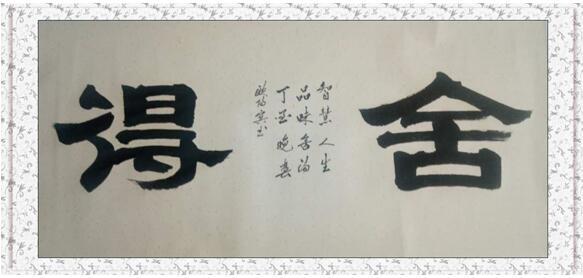 舍得
智慧人生
品味舍得
丁酉晚春
书